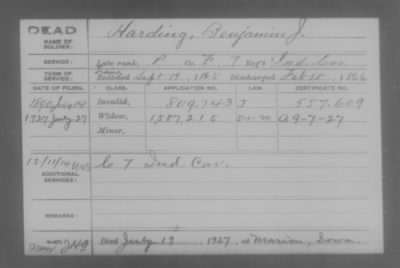 DEAD
NAME OF SOLDIER:
Harding, Benjamin J.
SERVICE:
Late rank, P Co. F, 7 Reg't Ind. Cav.
TERM OF SERVICE:
Enlisted Sept 19, 1865 Discharged Feb 18, 1866
DATE OF FILING. CLASS. APPLICATION NO. LAW. CERTIFICATE NO.
1890 July 14 Invalid, 809,743 J 557,609
1927 July 27 Widow, 1,587,215 A 9-7-27
Minor,
C 7 Ind Cav.
ADDITIONAL SERVICES:
REMARKS:
Died July 19, 1927, at Marion, Iowa.